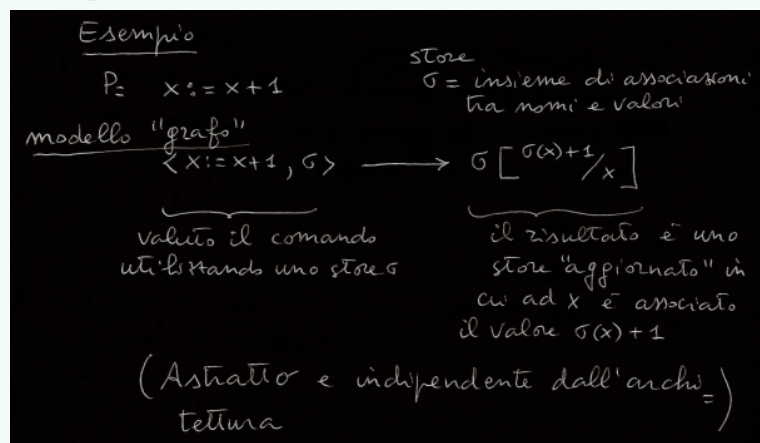 Esempio
P= x:=x+1
store
σ = insieme di associazioni
tra nomi e valori
modello "grafo"
<x:=x+1, σ> ⟶ σ[σ(x)+1/x]
valuto il comando
utilizzando uno store σ
il risultato è uno
store "aggiornato" in
cui ad x è associato
il valore σ(x)+1
(Astratto e indipendente dall'archi=
tettura)